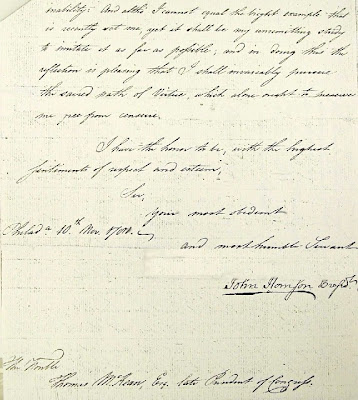 inability: And altho I cannot equal the bright example that
is recently set me, yet it shall be my unremitting study
to imitate it as far as possible; and in doing this the
reflection is pleasing that I shall invariably pursue
the sacred path of Virtue, which alone ought to preserve
me free from censure.
I have the honor to be, with the highest
sentiments of respect and esteem,
Sir,
your most obedient
Philad.a 10.th Nov. 1781.
and most humble Servant
John Hanson Presid.t
Thomas McKean, Esq. late President of Congress.